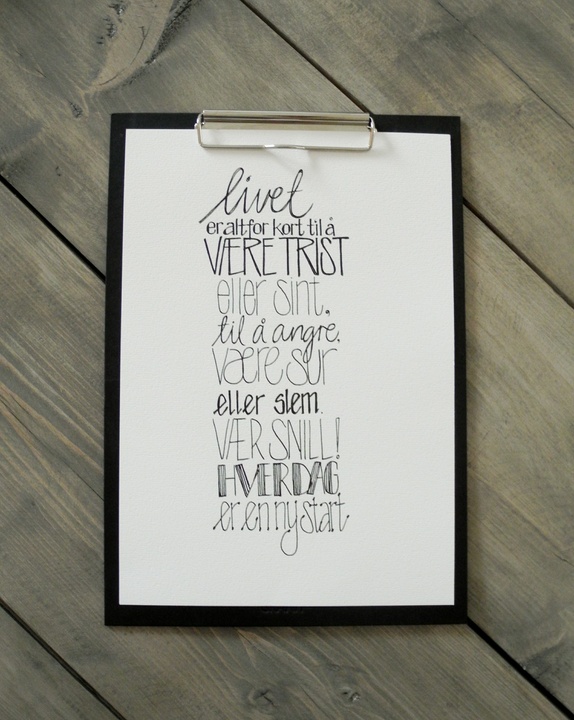 livet
er altfor kort til å
VÆRE TRIST
eller sint,
til å angre,
være sur
eller slem.
VÆR SNILL!
HVERDAG
er en ny start